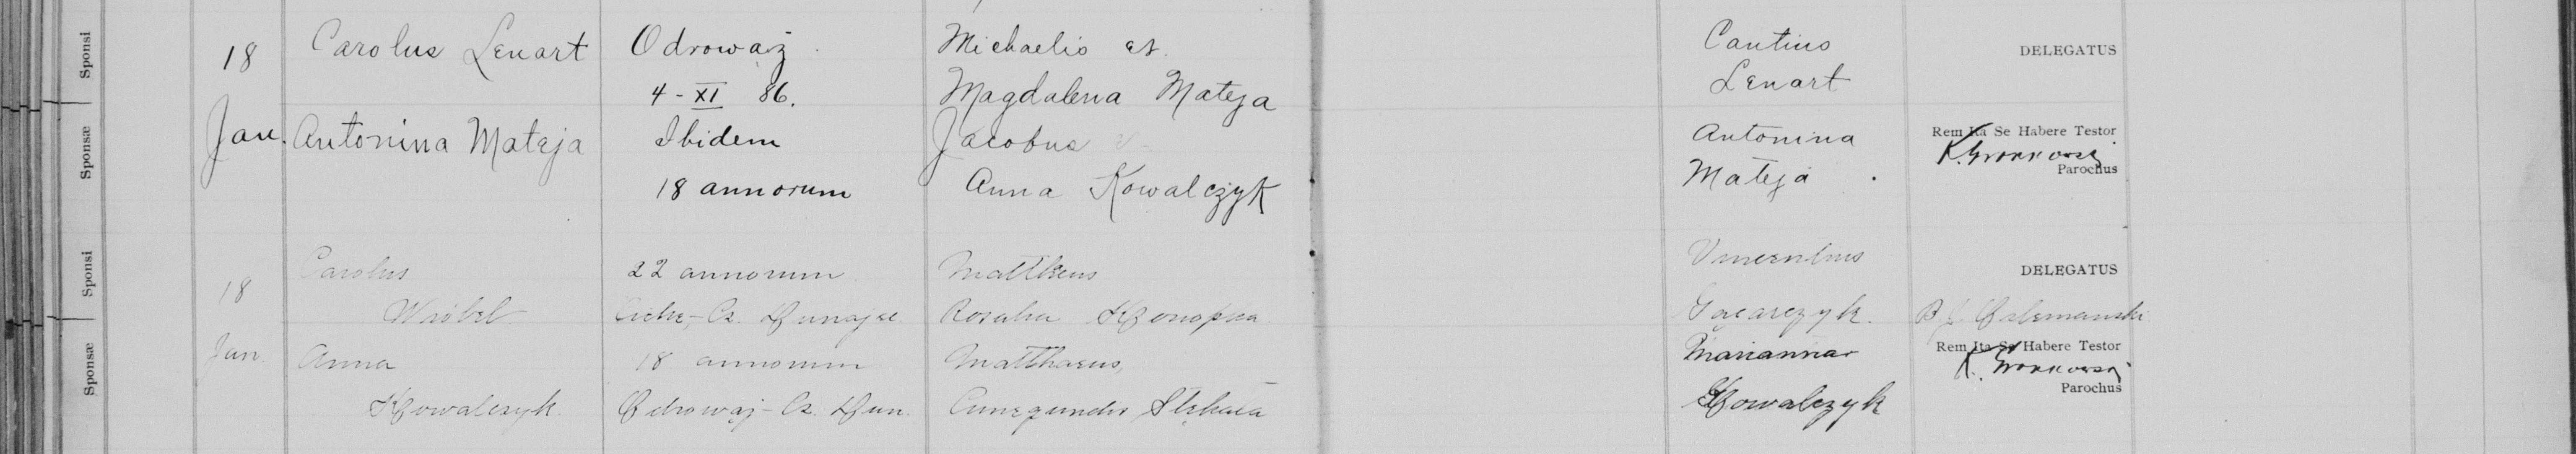 Sponsi
18
Carolus Lenart
Odrowąż
Michaelis et
Cantius
DELEGATUS
4 - XI 86.
Magdalena Mateja
Lenart
Sponsæ
Jan.
Antonina Mateja
Ibidem
Jacobus
Antonina
Rem Ita Se Habere Testor
Parochus
18 annorum
Anna Kowalczyk
Mateja
Sponsi
18
Carolus
22 annorum
Mattheus
DELEGATUS
Wróbel
Ciche, Cz. Dunajec
Rosalia Konopka
Sponsæ
Jan.
Anna
18 annorum
Matthaeus,
Marianna
Rem Ita Se Habere Testor
Parochus
Kowalczyk
Odrowąż - Cz. Dun.
Kowalczyk